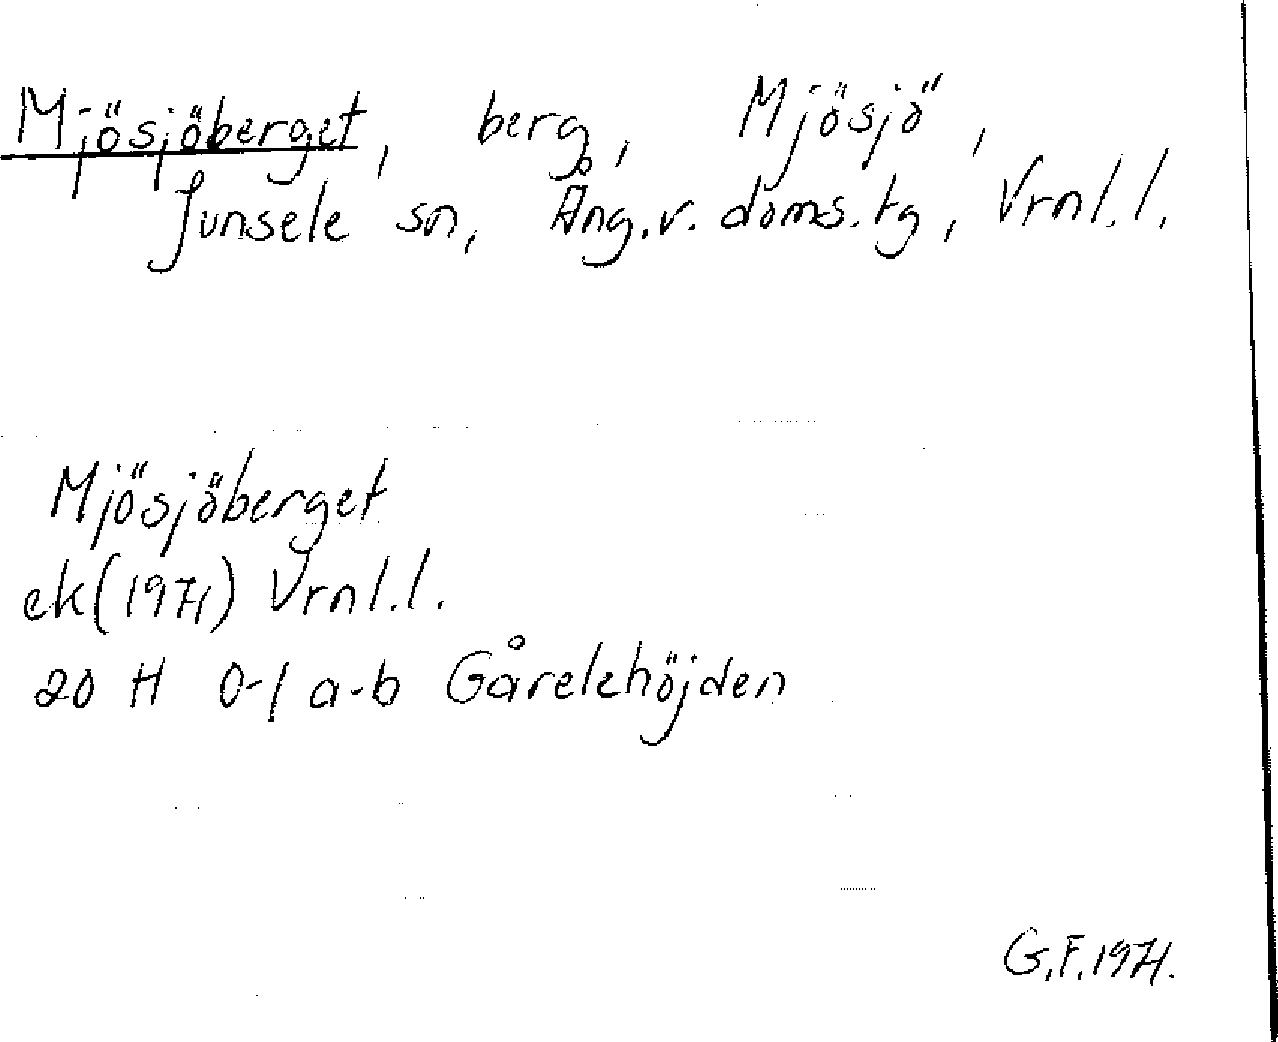 Mjösjöberget, berg, Mjösjö,
Junsele sn, Ång.v. doms.tg, Vrnl.l.
Mjösjöberget
ek(1971) Vrnl.l.
20 H 0-1 a-b Gårelehöjden
G.F.1971.